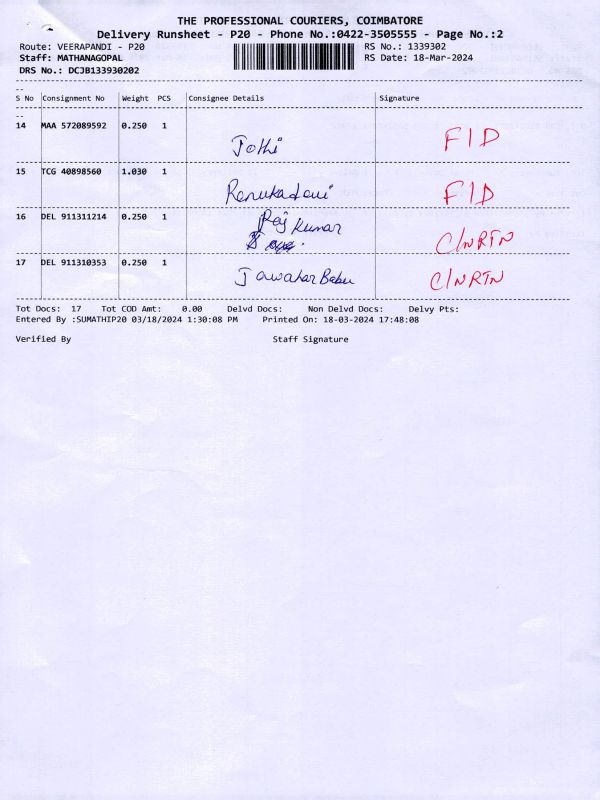 THE PROFESSIONAL COURIERS, COIMBATORE
Delivery Runsheet - P20 - Phone No.:0422-3505555 - Page No.:2
Route: VEERAPANDI - P20 RS No.: 1339302
Staff: MATHANAGOPAL RS Date: 18-Mar-2024
DRS No.: DCJB133930202
--
S No Consignment No Weight PCS Consignee Details Signature
--
14 MAA 572089592 0.250 1
Jothi FID
15 TCG 40898560 1.030 1
Renukadevi FID
16 DEL 911311214 0.250 1
Raj Kumar
C/NRTN
17 DEL 911310353 0.250 1
Jawahar Babu C/NRTN
Tot Docs: 17 Tot COD Amt: 0.00 Delvd Docs: Non Delvd Docs: Delvy Pts:
Entered By :SUMATHIP20 03/18/2024 1:30:08 PM Printed On: 18-03-2024 17:48:08
Verified By Staff Signature